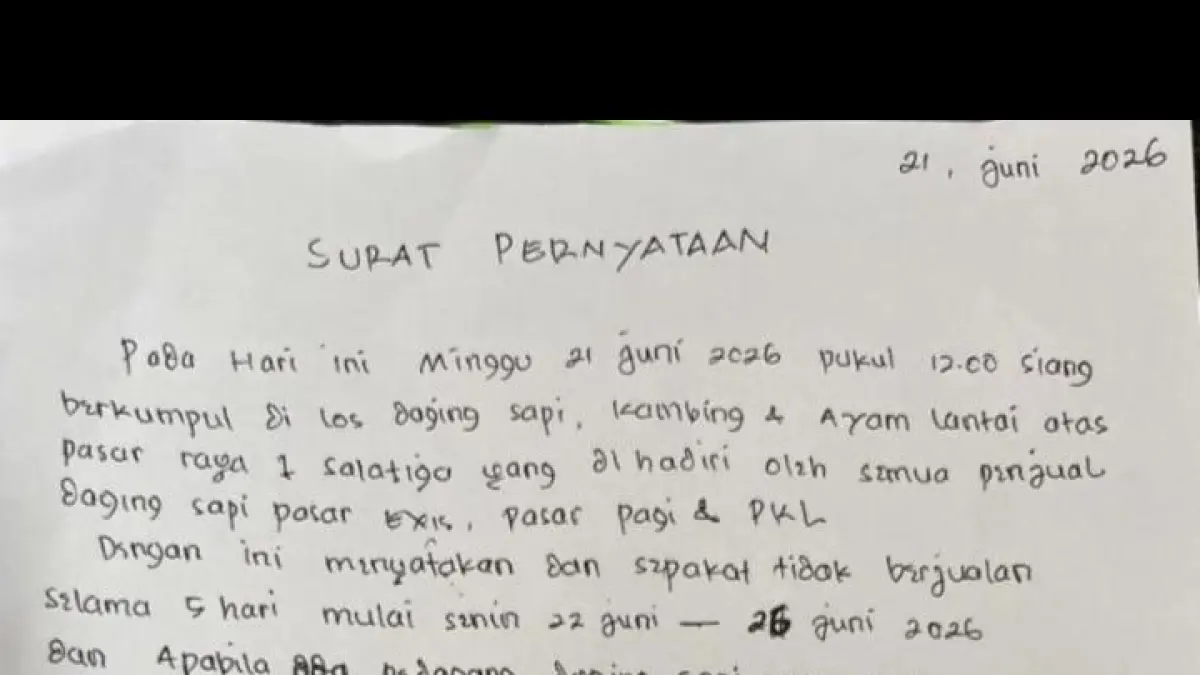 21, Juni 2026
SURAT PERNYATAAN
Pada Hari ini Minggu 21 Juni 2026 pukul 12.00 siang
berkumpul di los daging sapi, kambing & Ayam lantai atas
pasar raya 1 salatiga yang di hadiri oleh semua penjual
daging sapi pasar Exis, pasar pagi & PKL
Dengan ini menyatakan dan sepakat tidak berjualan
selama 5 hari mulai senin 22 juni — 26 juni 2026
dan Apabila ada pedagang daging sapi